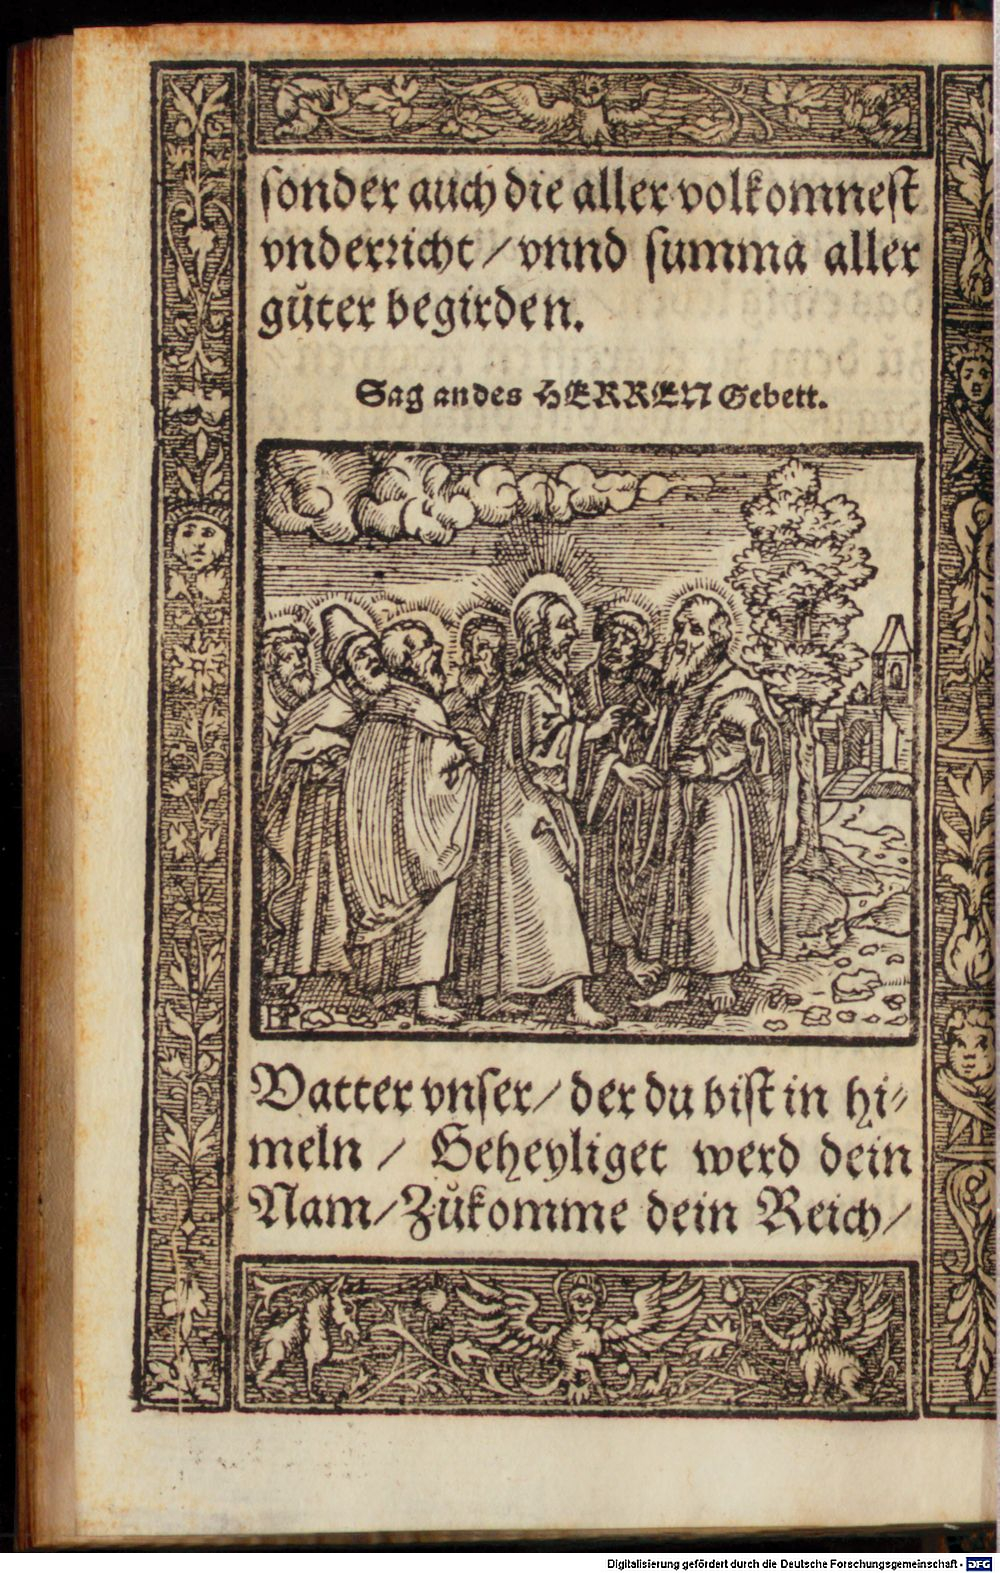 sonder auch die aller volkomnest
vnderricht / vnnd summa aller
gůter begirden.
Sag an des HERREN Gebett.
HP
Vatter vnser / der du bist in hi⸗
meln / Geheyliget werd dein
Nam / Zůkomme dein Reich /
Digitalisierung gefördert durch die Deutsche Forschungsgemeinschaft - DFG